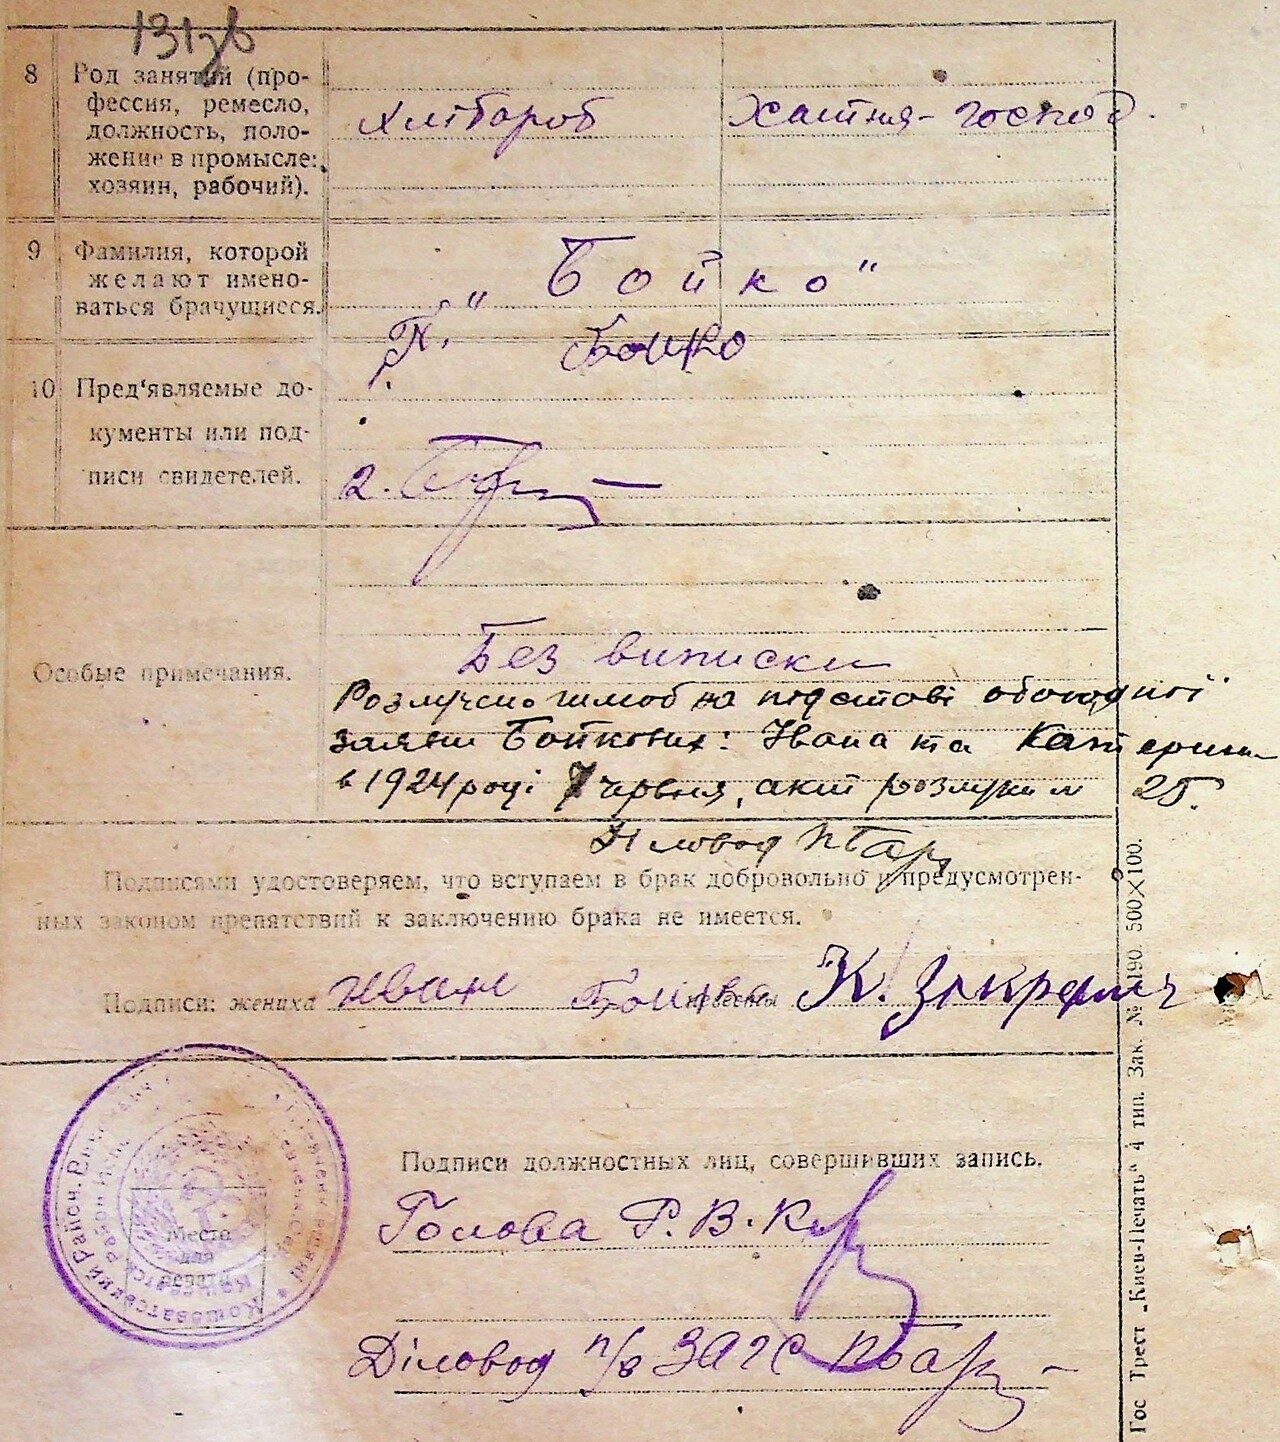 131зв
8 Род занятий (про-
фессия, ремесло,
должность, поло-
жение в промысле:
хозяин, рабочий).
Хлібороб Хатня-господ.
9 Фамилия, которой
желают имено-
ваться брачущиеся.
„Бойко"
Бойко
10 Пред'являемые до-
кументы или под-
писи свидетелей.
2.
Без виписки
Особые примечания.
Розлучено шлюб на підставі обопільної
заяви Бойкових: Івана та Катерини
в 1924 році 7 червня, акт розлуки № 25.
Діловод
Подписями удостоверяем, что вступаем в брак добровольно и предусмотрен-
ных законом препятствий к заключению брака не имеется.
Подписи: жениха Иван Бойко невесты К. Закревск
Подписи должностных лиц, совершивших запись.
Голова Р.В.К.
Діловод п/в ЗАГС
Место
для
печати
Кошоватський Район. Викон
Гос Трест „Киев-Печать" 4 тип. Зак. № 190. 500×100.